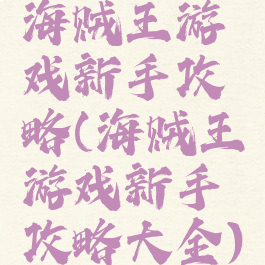 海贼王游
戏新手攻
略(海贼王
游戏新手
攻略大全)